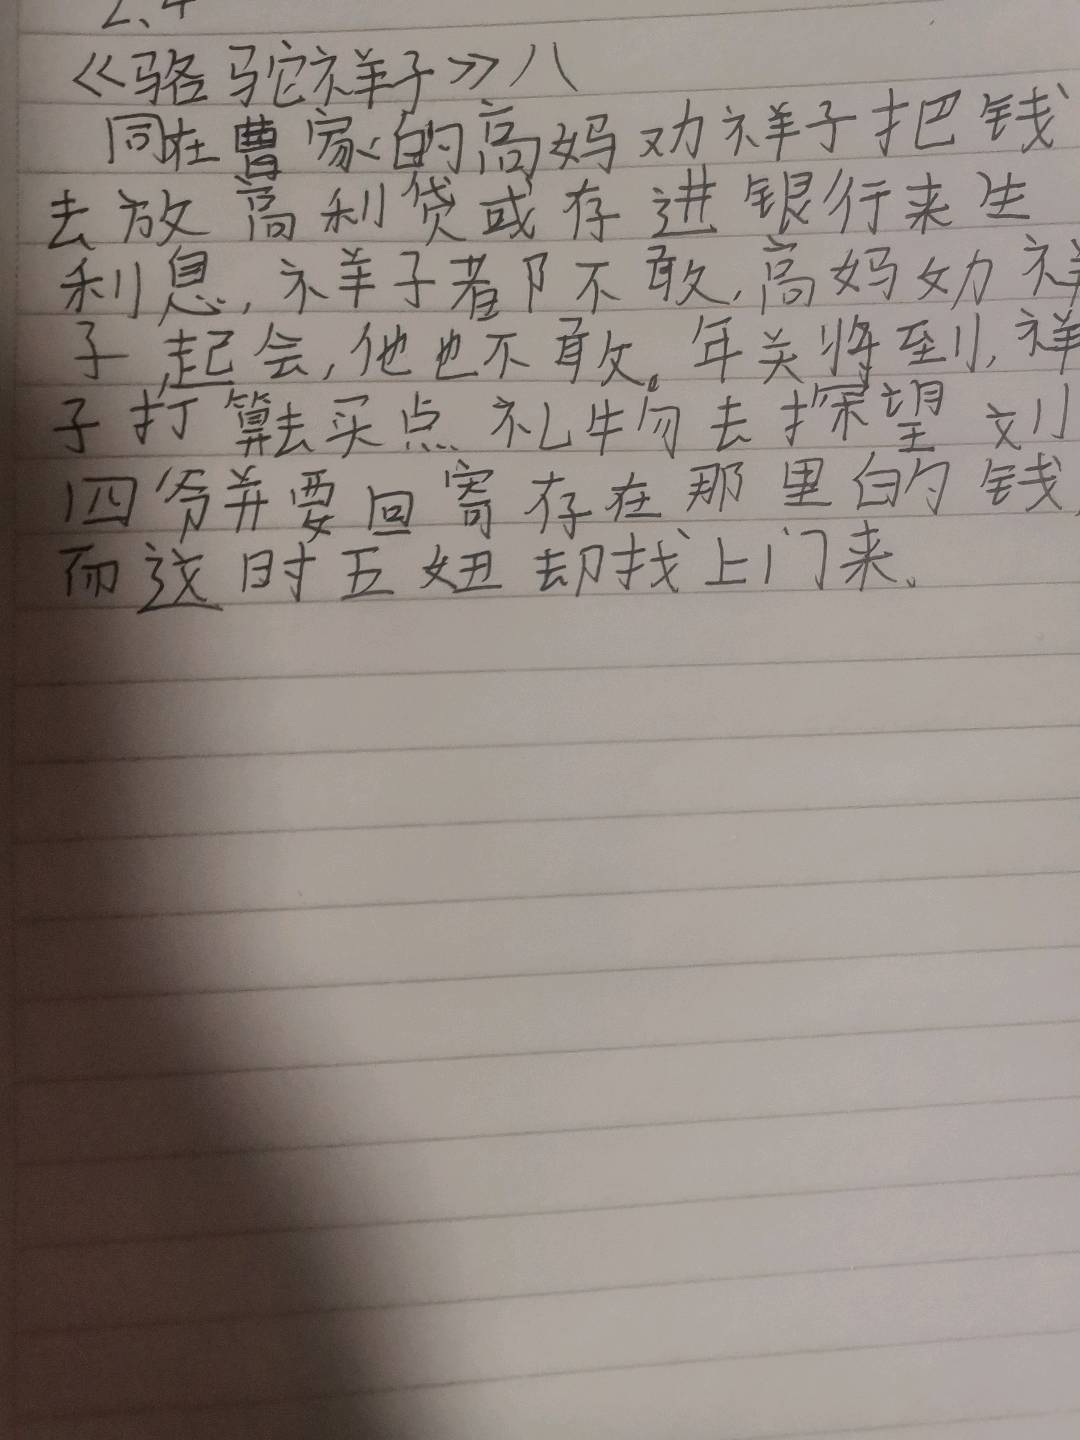 2、4
《骆驼祥子》八
同在曹家的高妈劝祥子把钱
去放高利贷或存进银行来生
利息,祥子都不敢,高妈劝祥
子起会,他也不敢。年关将到,祥
子打算去买点礼物去探望刘
四爷并要回寄存在那里的钱,
而这时五妞却找上门来。